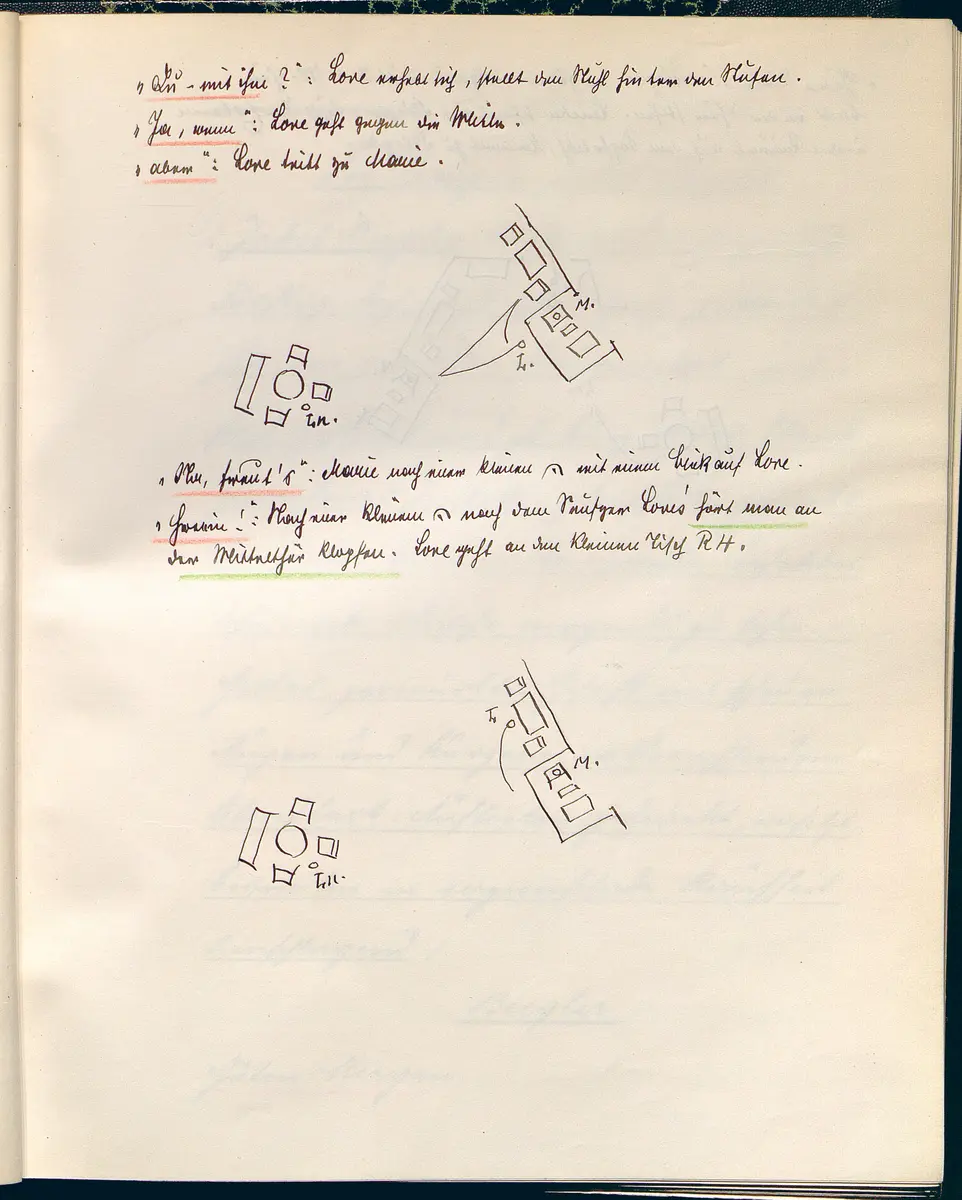 „Du – mit ihm?": Lore erhebt sich, stellt den Stuhl hinter den Stufen.
„Ja, wenn": Lore geht gegen die Mitte.
„aber": Lore tritt zu Marie.
M.
L.
Ln.
„Na, freut's": Marie nach einer kleinen 𝄐 mit einem Blick auf Lore.
„Herein!": Nach einer kleinen 𝄐 nach dem Seufzer Lores hört man an
der Mittelthür klopfen. Lore geht an den kleinen Tisch RH.
L.
M.
Ln.